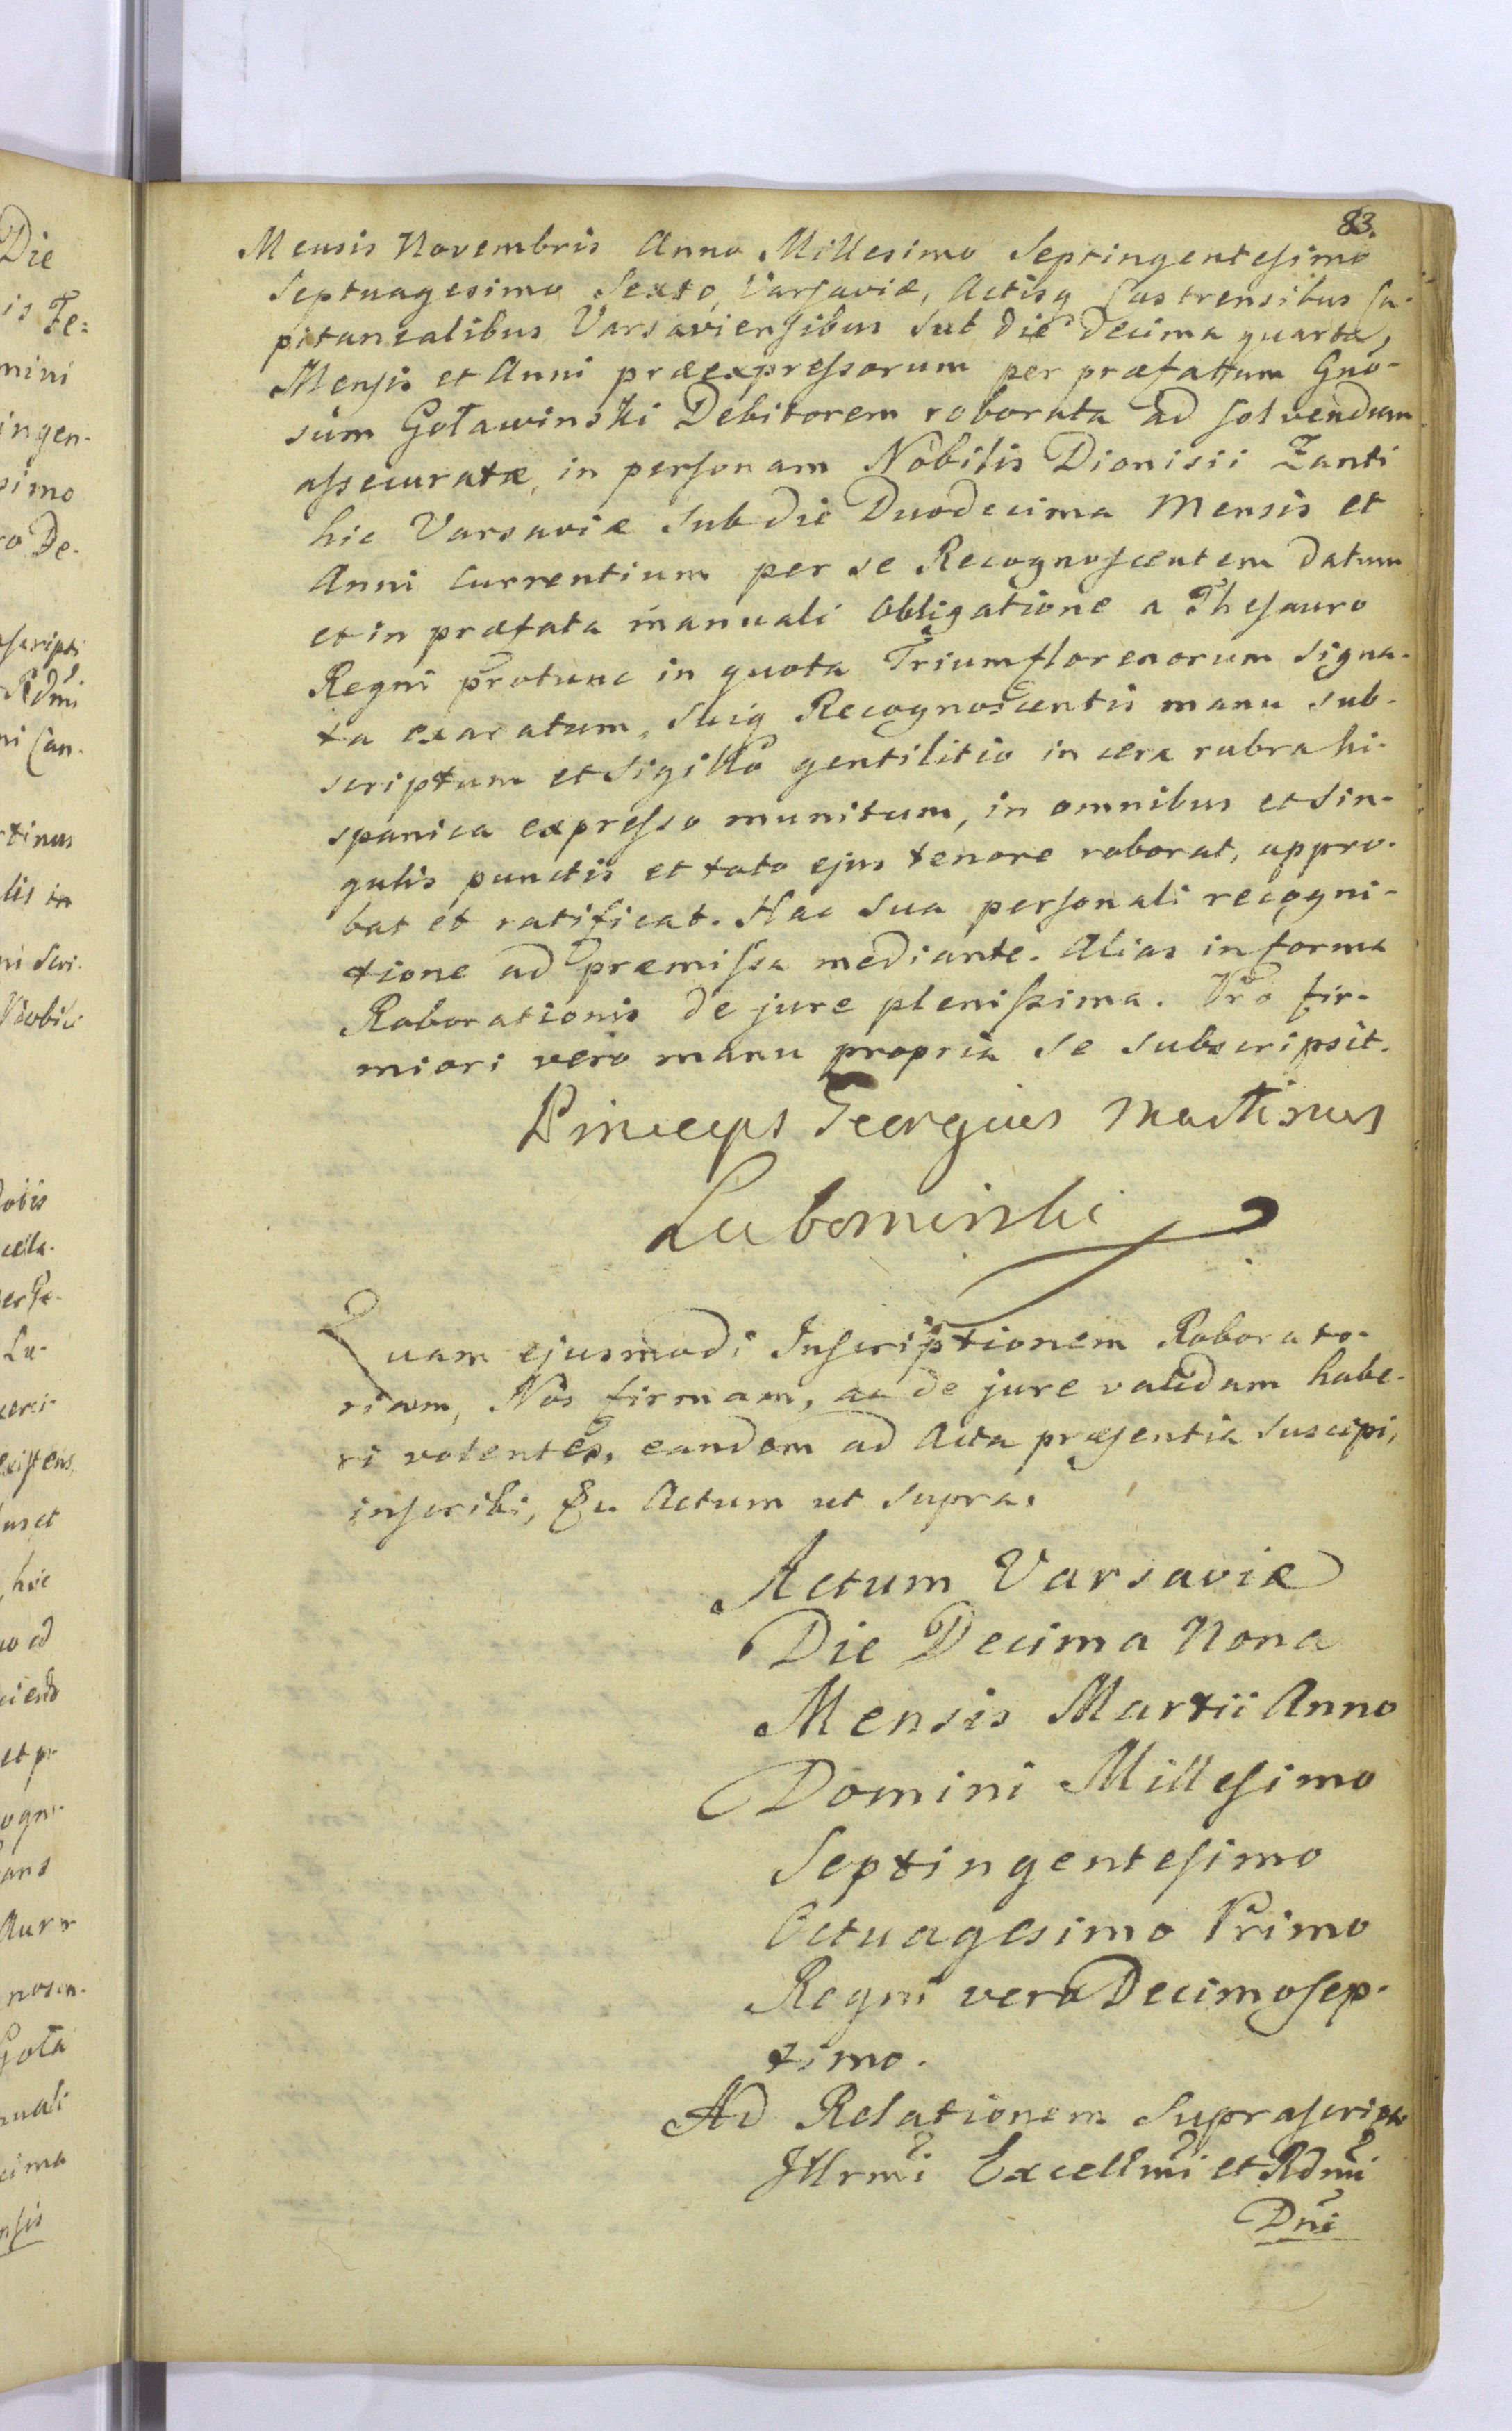 83.
Mensis Novembris Anno Millesimo Septingentesimo
Septuagesimo Sexto, Varsaviæ, Actisq Castrensibus Ca-
pitanealibus Varsaviensibus sub die Decima quarta,
Mensis et Anni præexpressorum per præfatum Gno-
sum Goławinski Debitorem roborata ad solvendum
assecuratæ, in personam Nobilis Dionisii Zanti
hic Varsaviæ sub die Duodecima Mensis et
Anni currentium per se Recognoscentem datum
et in præfata manuali Obligatione a Thesauro
Regni protunc in quota Trium florenorum signa-
ta exaratum, suiq Recognoscentis manu sub-
scriptum et Sigillo gentilitio in cera rubra hi-
spanica expresso munitum, in omnibus et sin-
gulis punctis et toto ejus tenore roborat, appro-
bat et ratificat. Hac sua personali recogni-
tione ad præmissa mediante. Alias in forma
Roborationis de jure plenissima. Pro fir-
miori vero manu propria se subscripsit.
Princeps Georgius Martinus
Lubomirski
Quam ejusmodi Inscriptionem Roborato-
riam, Nos firmam, ac de jure validam habe-
ri volentes, eandem ad Acta præsentia suscipi,
inscribi, &c. Actum ut supra.
Actum Varsaviæ
Die Decima Nona
Mensis Martii Anno
Domini Millesimo
Septingentesimo
Octuagesimo Primo
Regni vero Decimosep-
timo.
Ad Relationem Suprascripti
Illrmi Excellmi et Rdmi
Dni